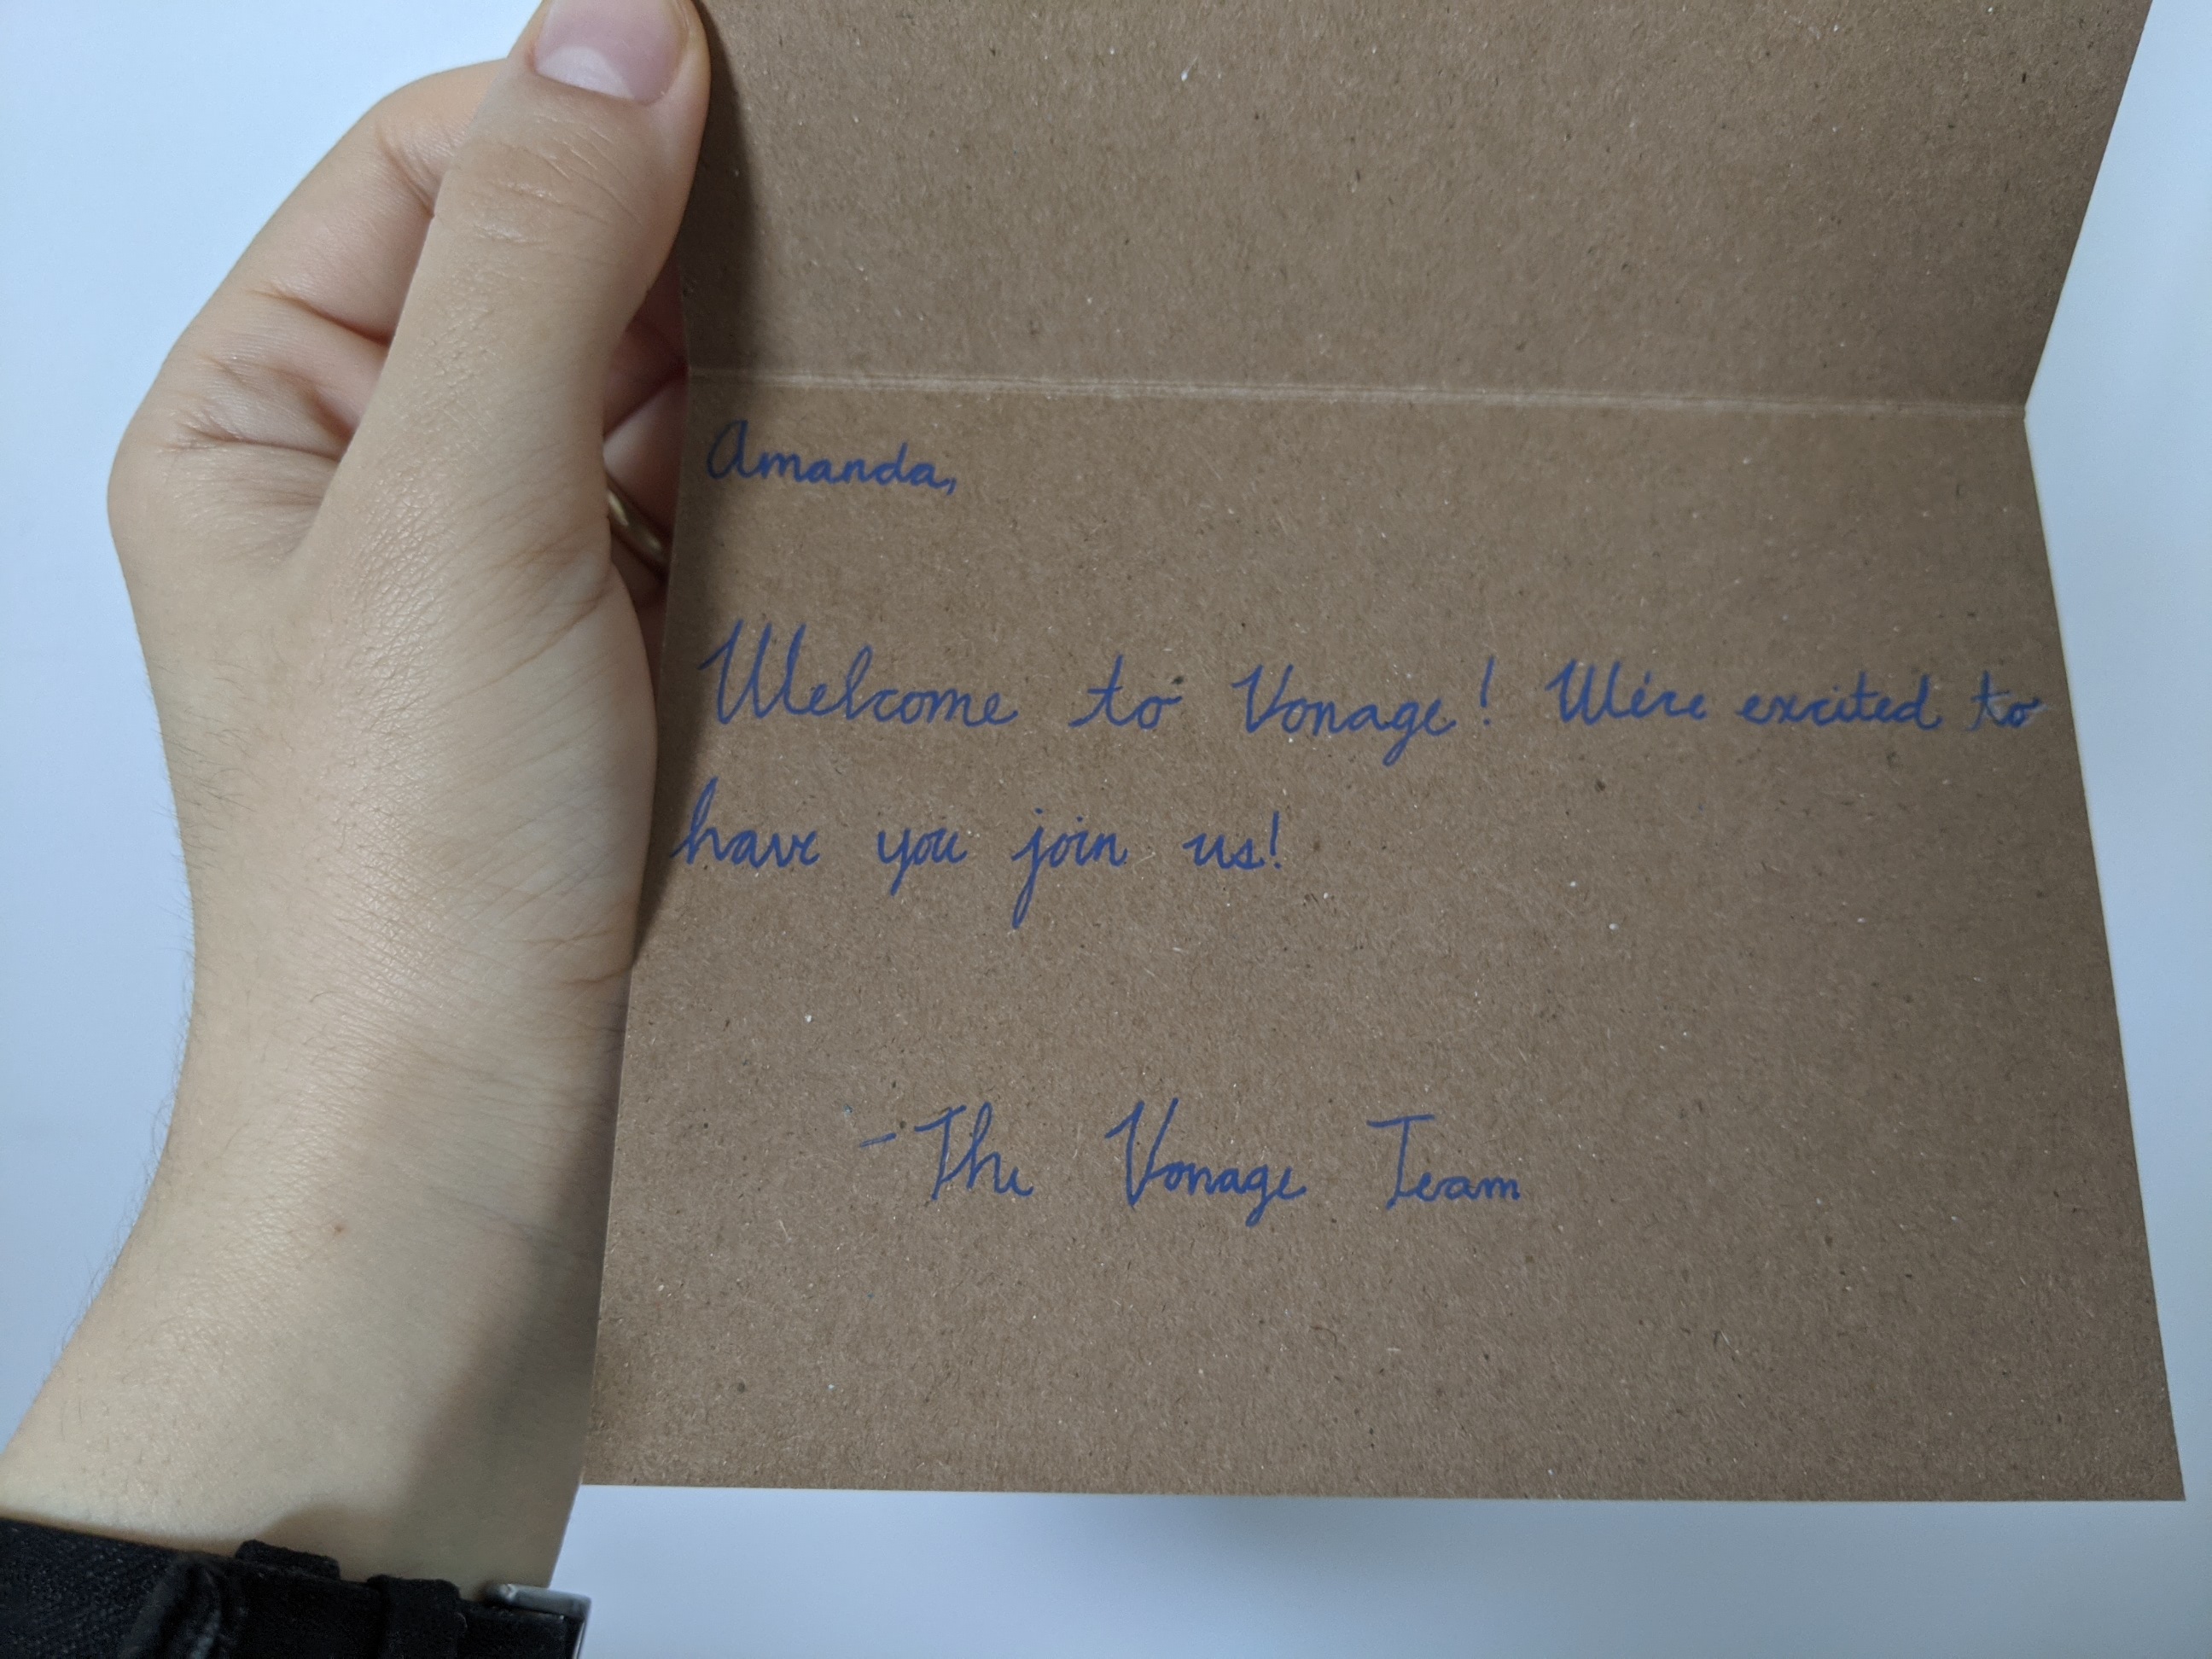 Amanda,
Welcome to Vonage! We're excited to
have you join us!
-The Vonage Team